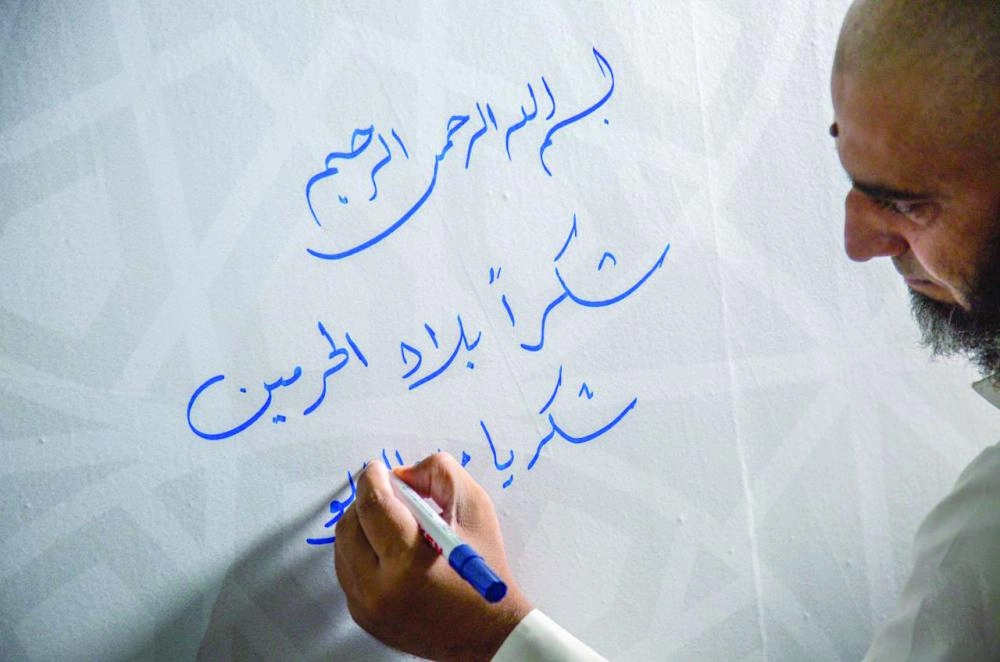 بسم الله الرحمن الرحيم
شكراً بلاد الحرمين
شكر يا